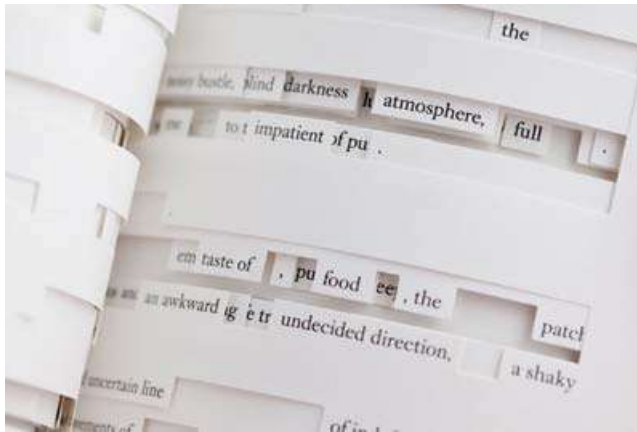 the
bustle, blind darkness h atmosphere, full .
to t impatient of pu .
em taste of , pu food ee , the patch
an awkward ig e tr undecided direction, a shaky
uncertain line
of